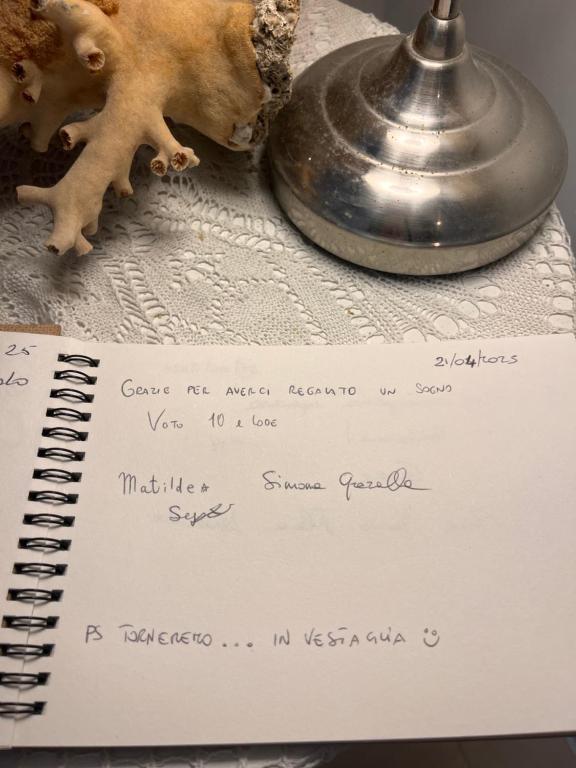 25
21/04/2025
GRAZIE PER AVERCI REGALATO UN SOGNO
VOTO 10 e LODE
Matilde Simona
PS TORNEREMO... IN VESTAGLIA